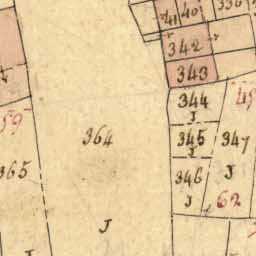 41 40 330
342
343
344 49
J
59 364 345 347
J
365 346 J
J 62
J
J J